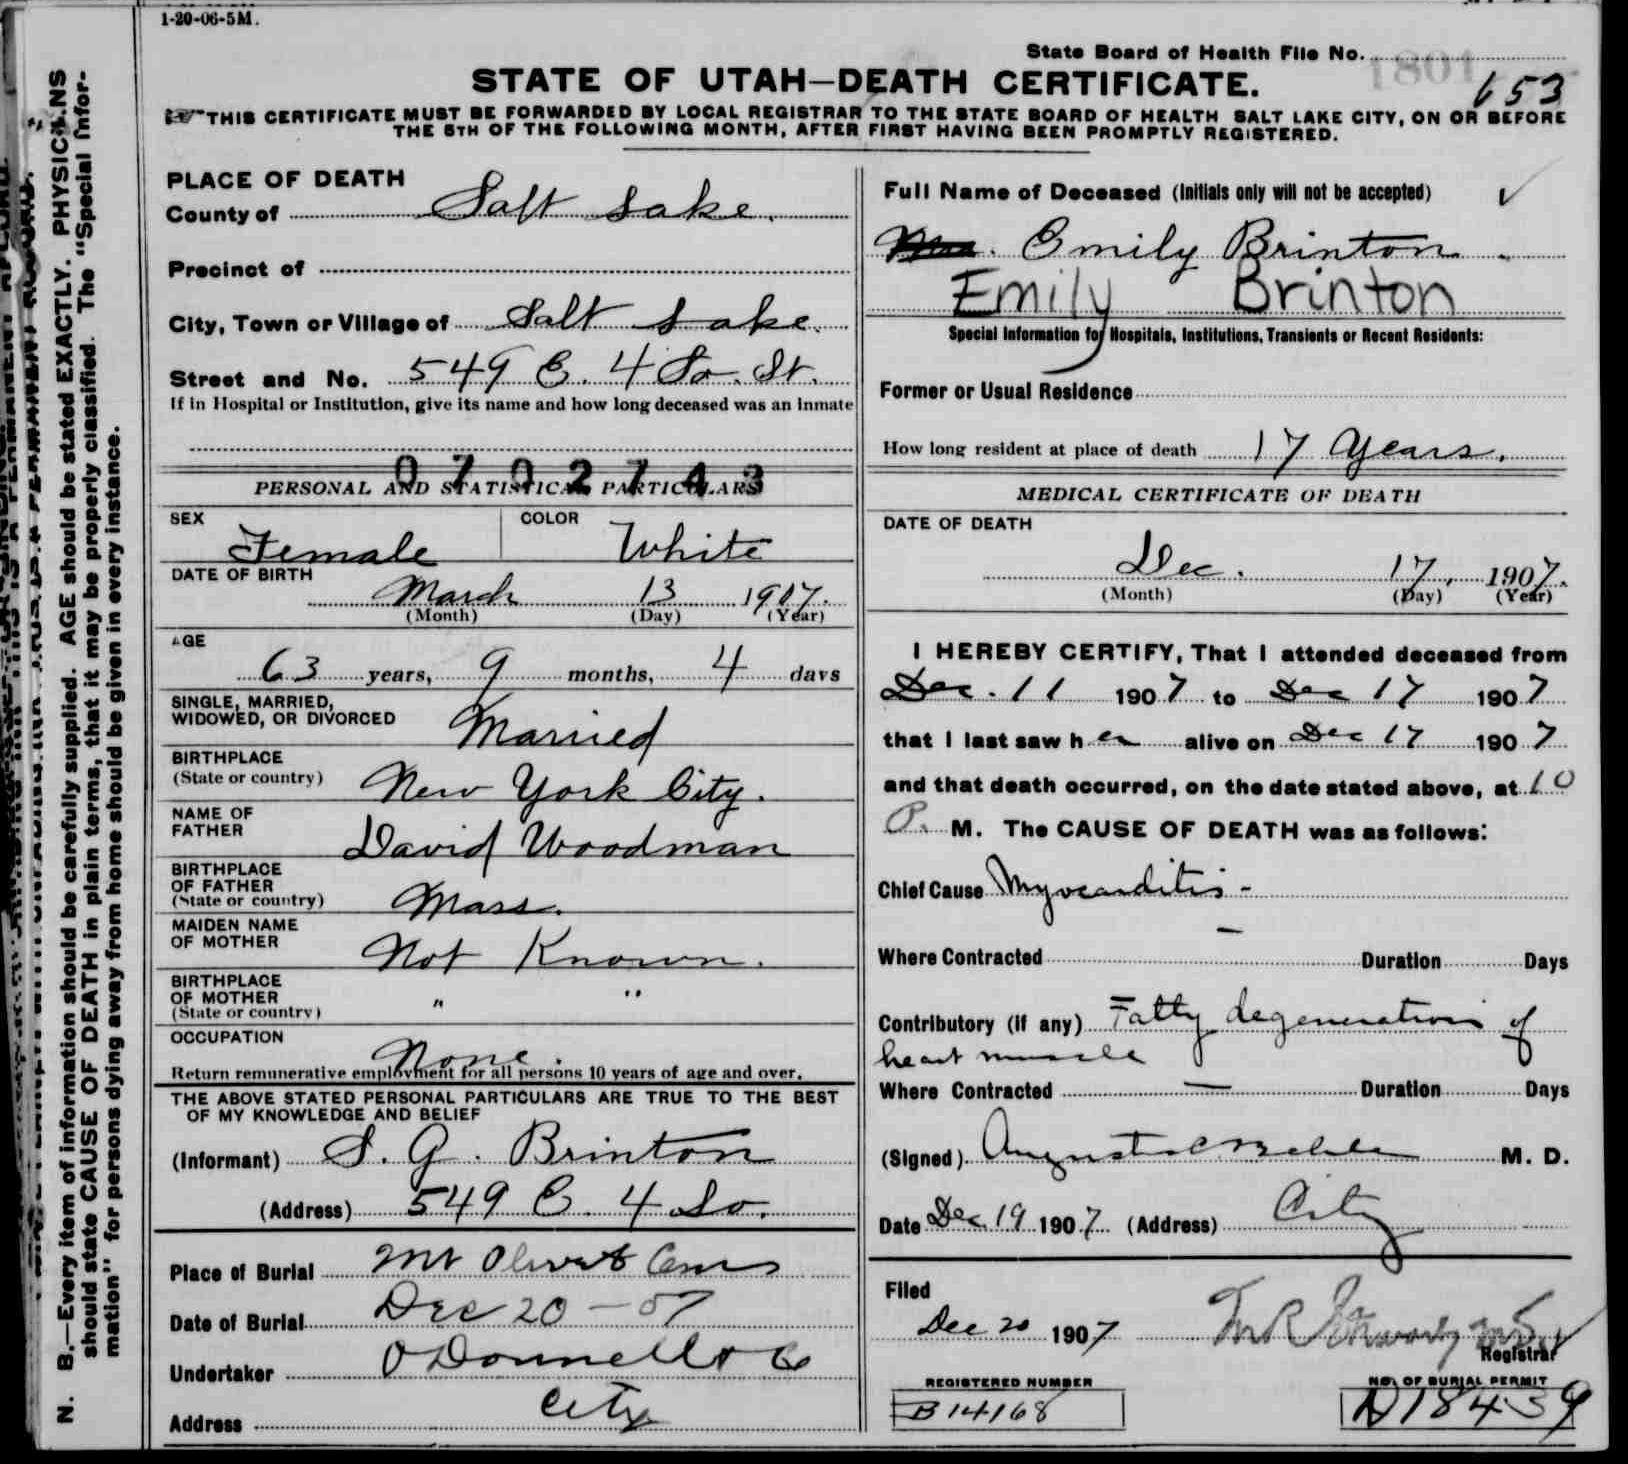 1-20-06-5M.
State Board of Health File No. 1801
653
STATE OF UTAH—DEATH CERTIFICATE.
THIS CERTIFICATE MUST BE FORWARDED BY LOCAL REGISTRAR TO THE STATE BOARD OF HEALTH SALT LAKE CITY, ON OR BEFORE
THE 5TH OF THE FOLLOWING MONTH, AFTER FIRST HAVING BEEN PROMPTLY REGISTERED.
N. B.—Every item of information should be carefully supplied. AGE should be stated EXACTLY. PHYSICIANS
should state CAUSE OF DEATH in plain terms, that it may be properly classified. The "Special Infor-
mation" for persons dying away from home should be given in every instance.
PLACE OF DEATH
County of Salt Lake.
Precinct of
City, Town or Village of Salt Lake.
Street and No. 549 E. 4 So. St.
If in Hospital or Institution, give its name and how long deceased was an inmate
0702743
PERSONAL AND STATISTICAL PARTICULARS
SEX Female COLOR White
DATE OF BIRTH
March 13 1907.
(Month) (Day) (Year)
AGE
63 years, 9 months, 4 days
SINGLE, MARRIED,
WIDOWED, OR DIVORCED Married
BIRTHPLACE
(State or country) New York City.
NAME OF
FATHER David Woodman
BIRTHPLACE
OF FATHER
(State or country) Mass.
MAIDEN NAME
OF MOTHER Not Known.
BIRTHPLACE
OF MOTHER " "
(State or country)
OCCUPATION
None.
Return remunerative employment for all persons 10 years of age and over.
THE ABOVE STATED PERSONAL PARTICULARS ARE TRUE TO THE BEST
OF MY KNOWLEDGE AND BELIEF
(Informant) S. G. Brinton
(Address) 549 E. 4 So.
Place of Burial Mt Olivet Cem
Date of Burial Dec 20 - 07
Undertaker O'Donnell & Co
Address City
Full Name of Deceased (Initials only will not be accepted) ✓
Mrs. Emily Brinton.
Emily Brinton
Special Information for Hospitals, Institutions, Transients or Recent Residents:
Former or Usual Residence
How long resident at place of death 17 years.
MEDICAL CERTIFICATE OF DEATH
DATE OF DEATH
Dec. 17, 1907.
(Month) (Day) (Year)
I HEREBY CERTIFY, That I attended deceased from
Dec. 11 1907 to Dec 17 1907
that I last saw her alive on Dec 17 1907
and that death occurred, on the date stated above, at 10
P. M. The CAUSE OF DEATH was as follows:
Chief Cause Myocarditis -
Where Contracted — Duration Days
Contributory (if any) Fatty degeneration of
heart muscle
Where Contracted — Duration Days
(Signed) M. D.
Date Dec 19 1907 (Address) City
Filed
Dec 20 1907
Registrar
REGISTERED NUMBER NO. OF BURIAL PERMIT
B 14168 D18439